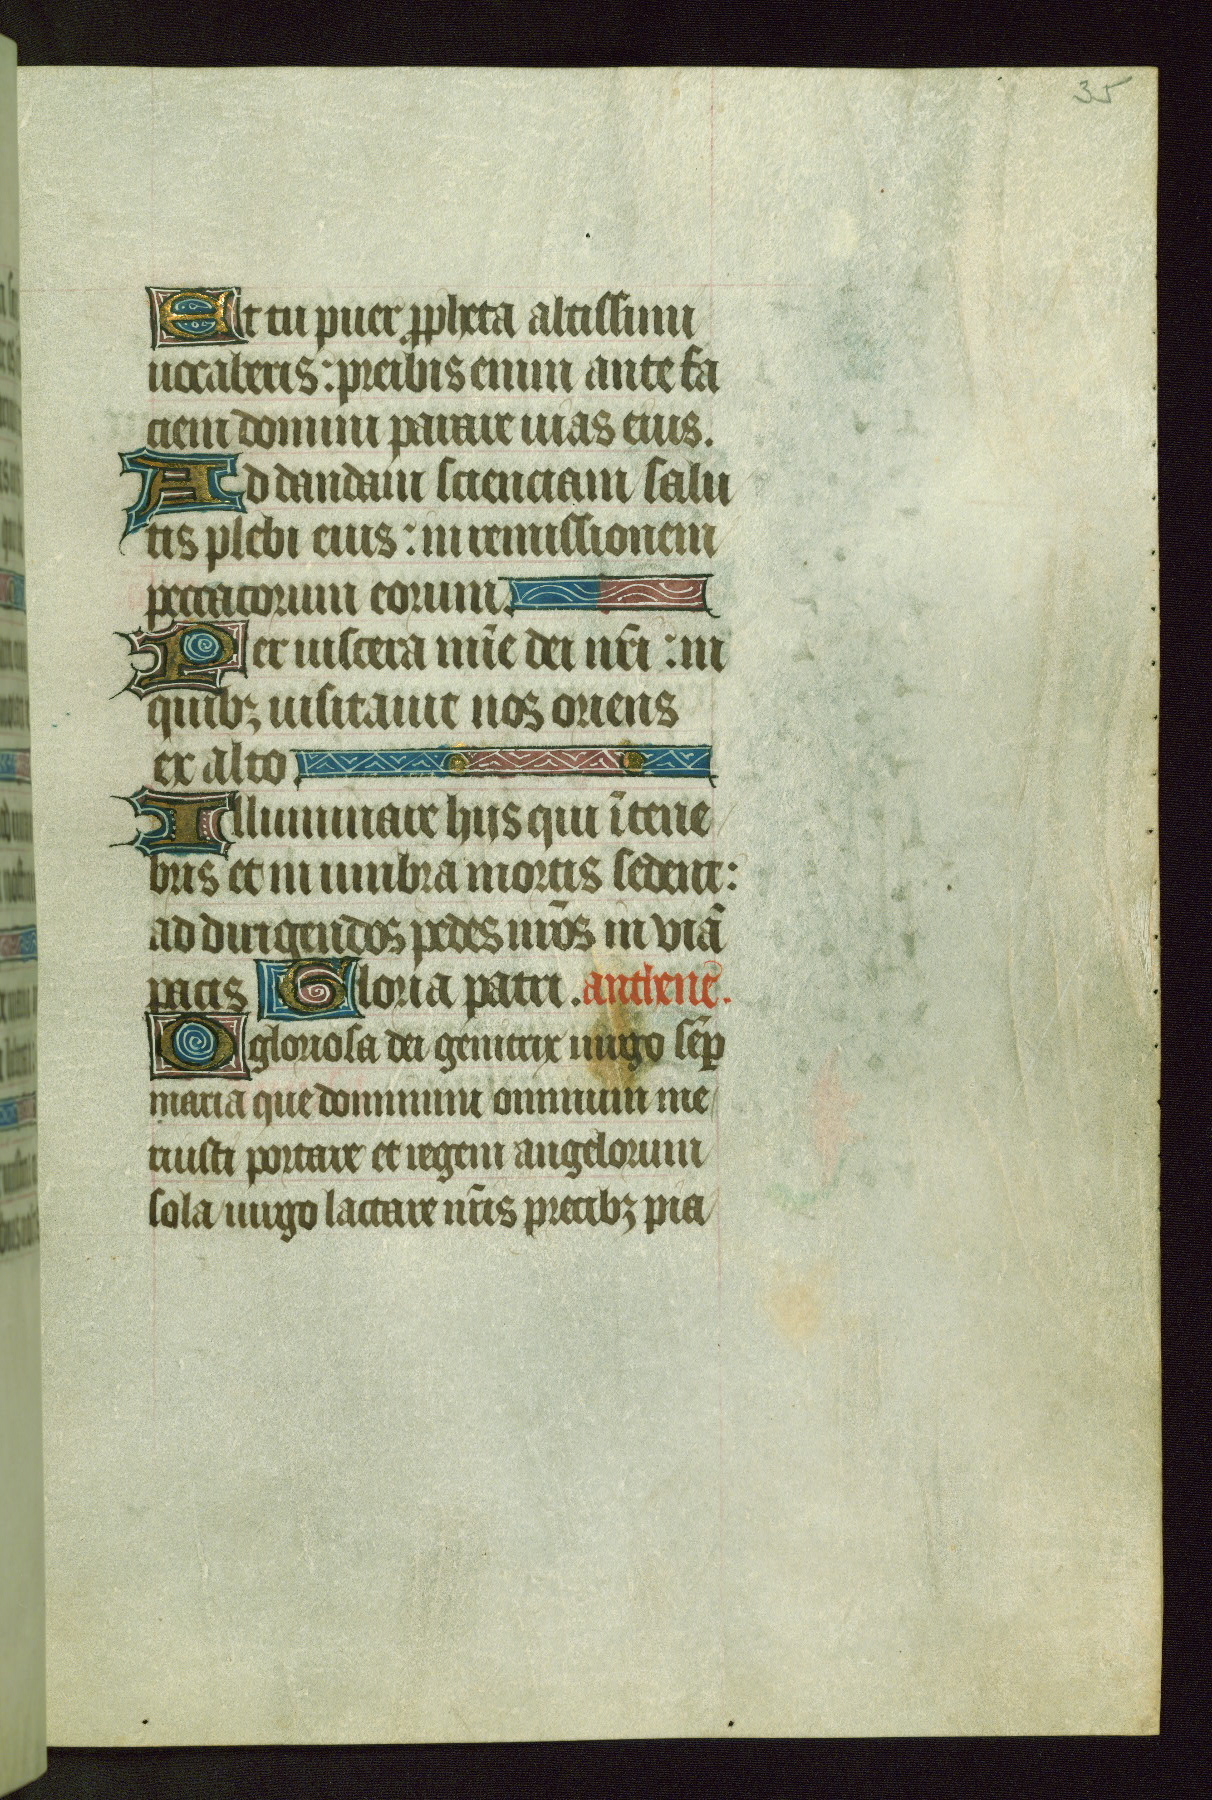 35
Et tu puer ꝓpheta altissimi
uocaberis: preibis enim ante fa
ciem domini parare uias eius.
Ad dandam scienciam salu
tis plebi eius: in remissionem
peccatorum eorum.
Per uiscera mīe dei nr̄i: in
quibꝫ uisitauit nos oriens
ex alto.
Illuminare hijs qui ītene
bris et in umbra mortis sedent:
ad dirigendos pedes nr̄os in viā
pacis Gloria patri. antiene.
O gloriosa dei genitrix uirgo sēp
maria que dominum omnium me
ruisti portare et regem angelorum
sola uirgo lactare nr̄is precibꝫ pia